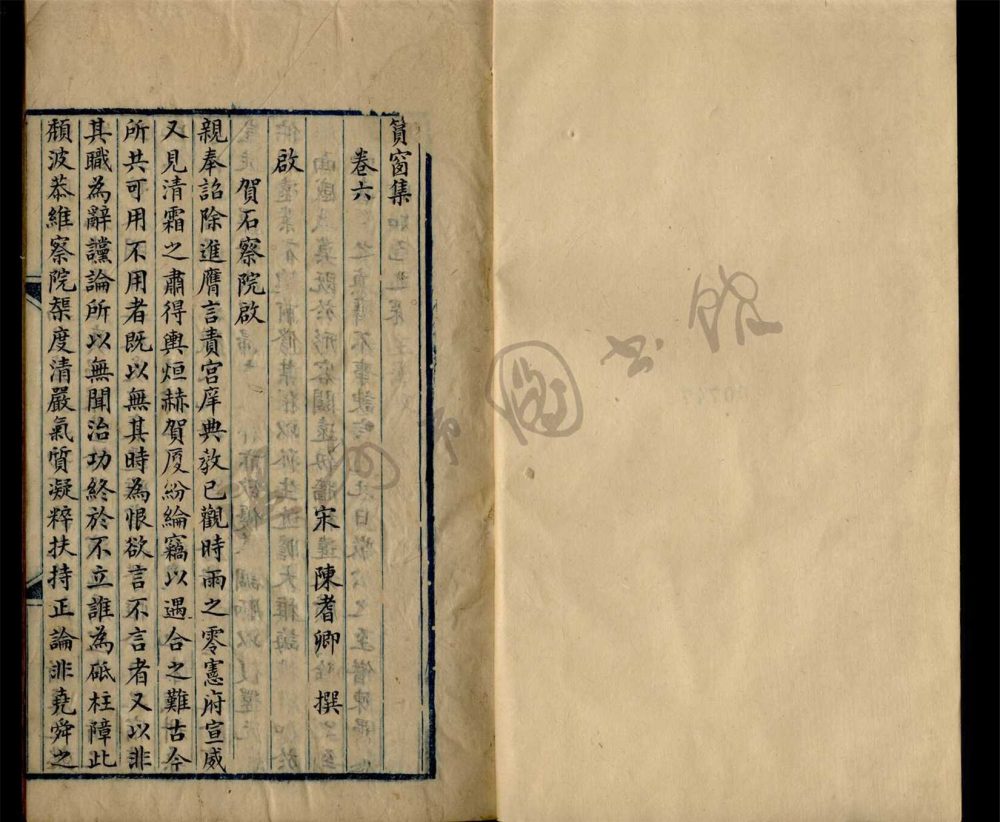 篔窗集
卷六
宋 陳耆卿 撰
啟
賀石察院啟
親奉詔除進膺言責宮庠典教已觀時雨之零憲府宣威
又見清霜之肅得輿烜赫賀厦紛綸竊以遇合之難古今
所共可用不用者既以無其時為恨欲言不言者又以非
其職為辭讜論所以無聞治功終於不立誰為砥柱障此
頹波恭維察院榘度清嚴氣質凝粹扶持正論非堯舜之